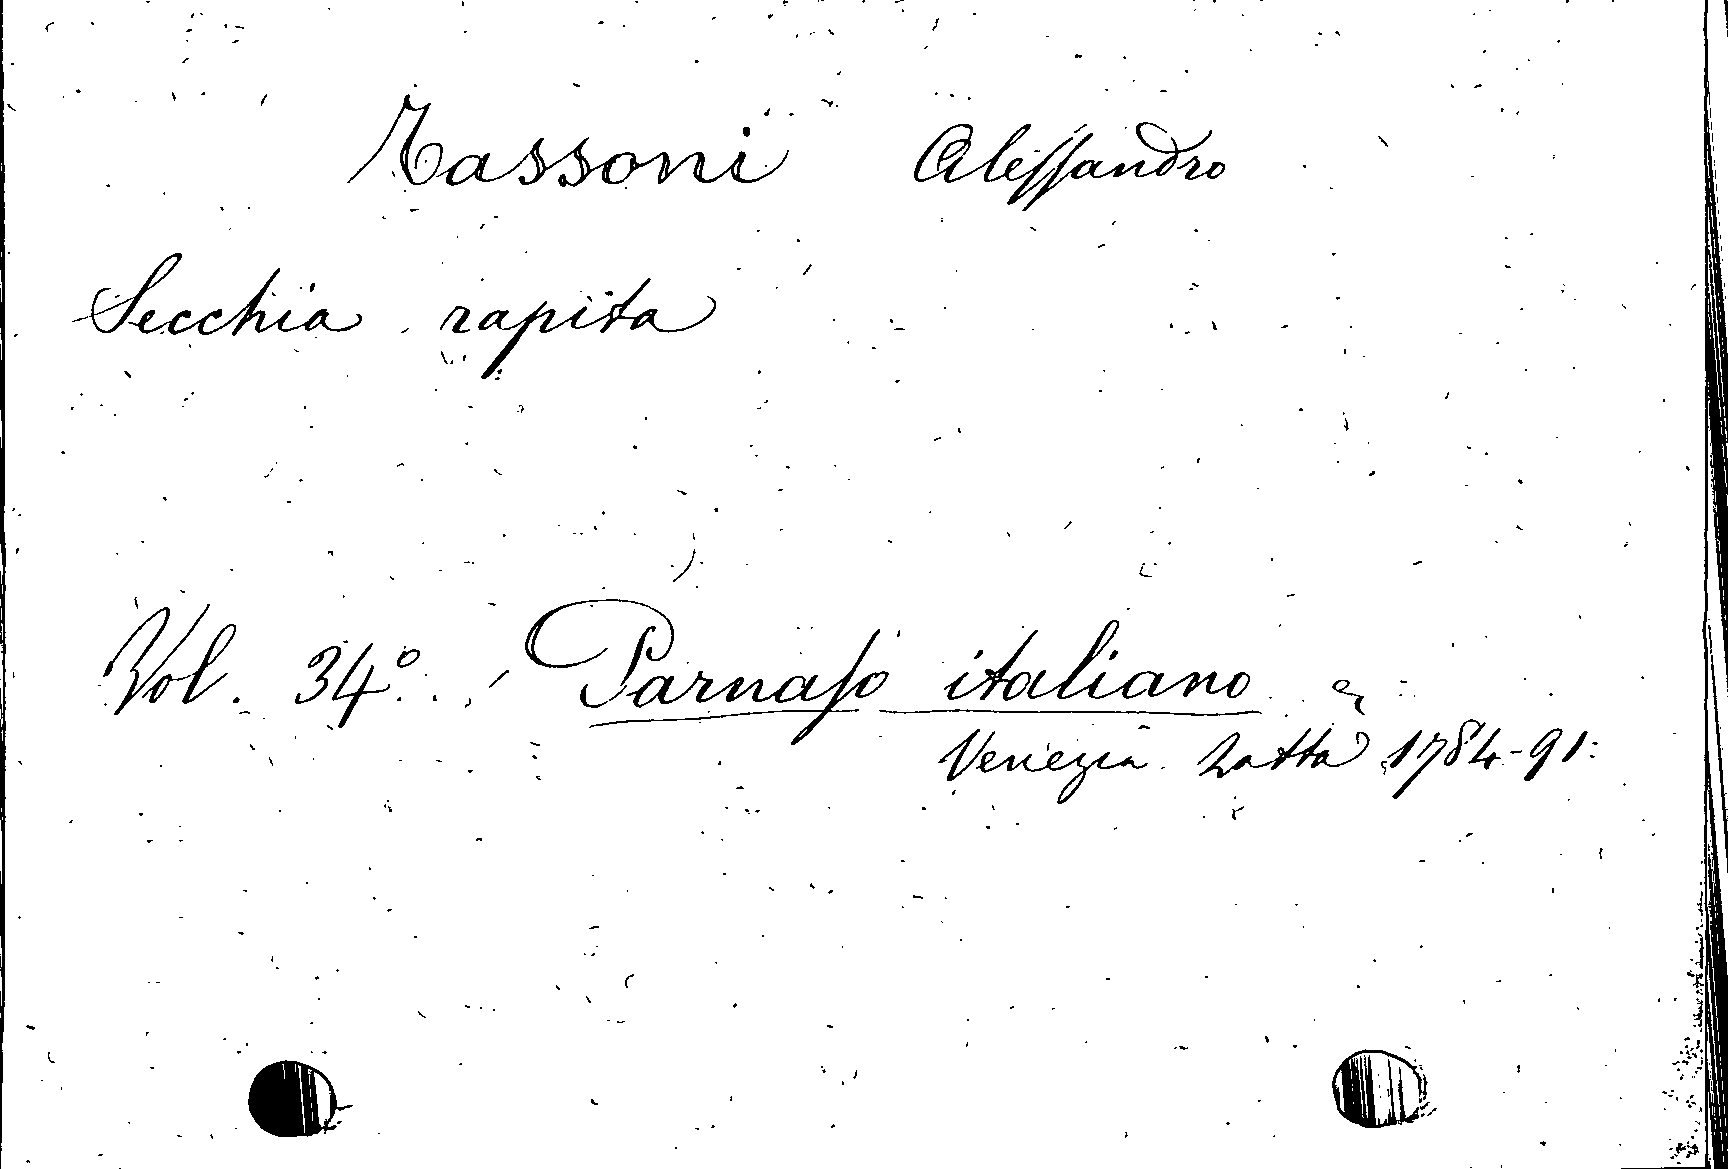 Tassoni Alessandro
Secchia rapita
Vol. 34º. Parnaso italiano
Venezia Zatta 1784-91.